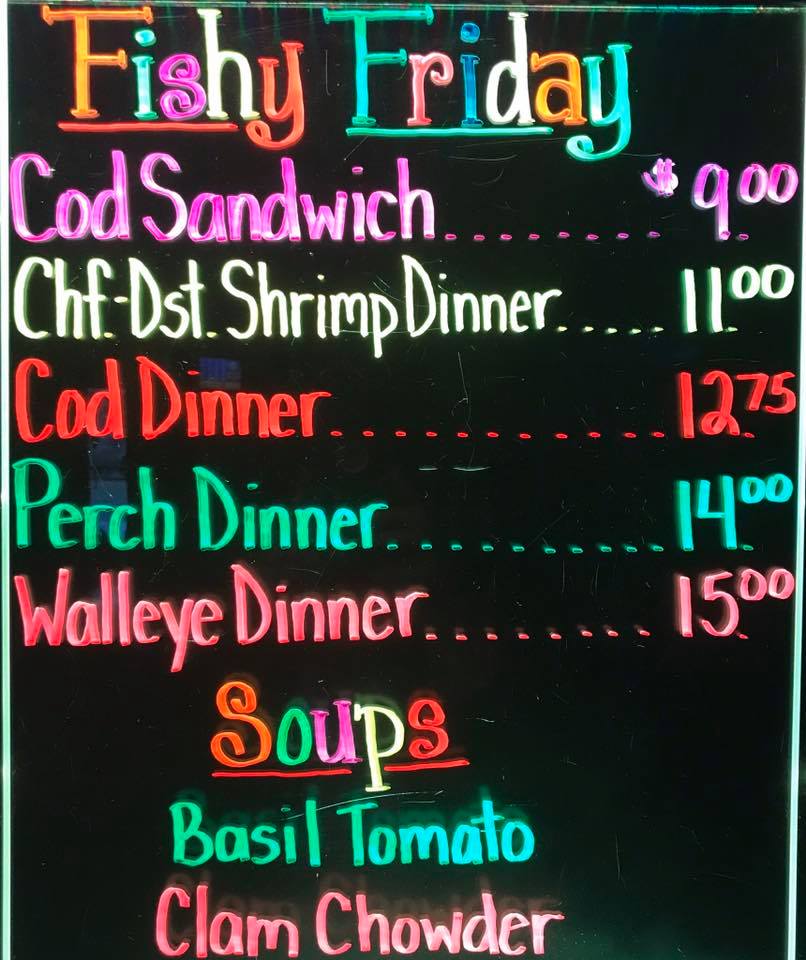 Fishy Friday
Cod Sandwich........ $9.00
Chf.-Dst. Shrimp Dinner..... 11.00
Cod Dinner........... 12.75
Perch Dinner.......... 14.00
Walleye Dinner........ 15.00
Soups
Basil Tomato
Clam Chowder